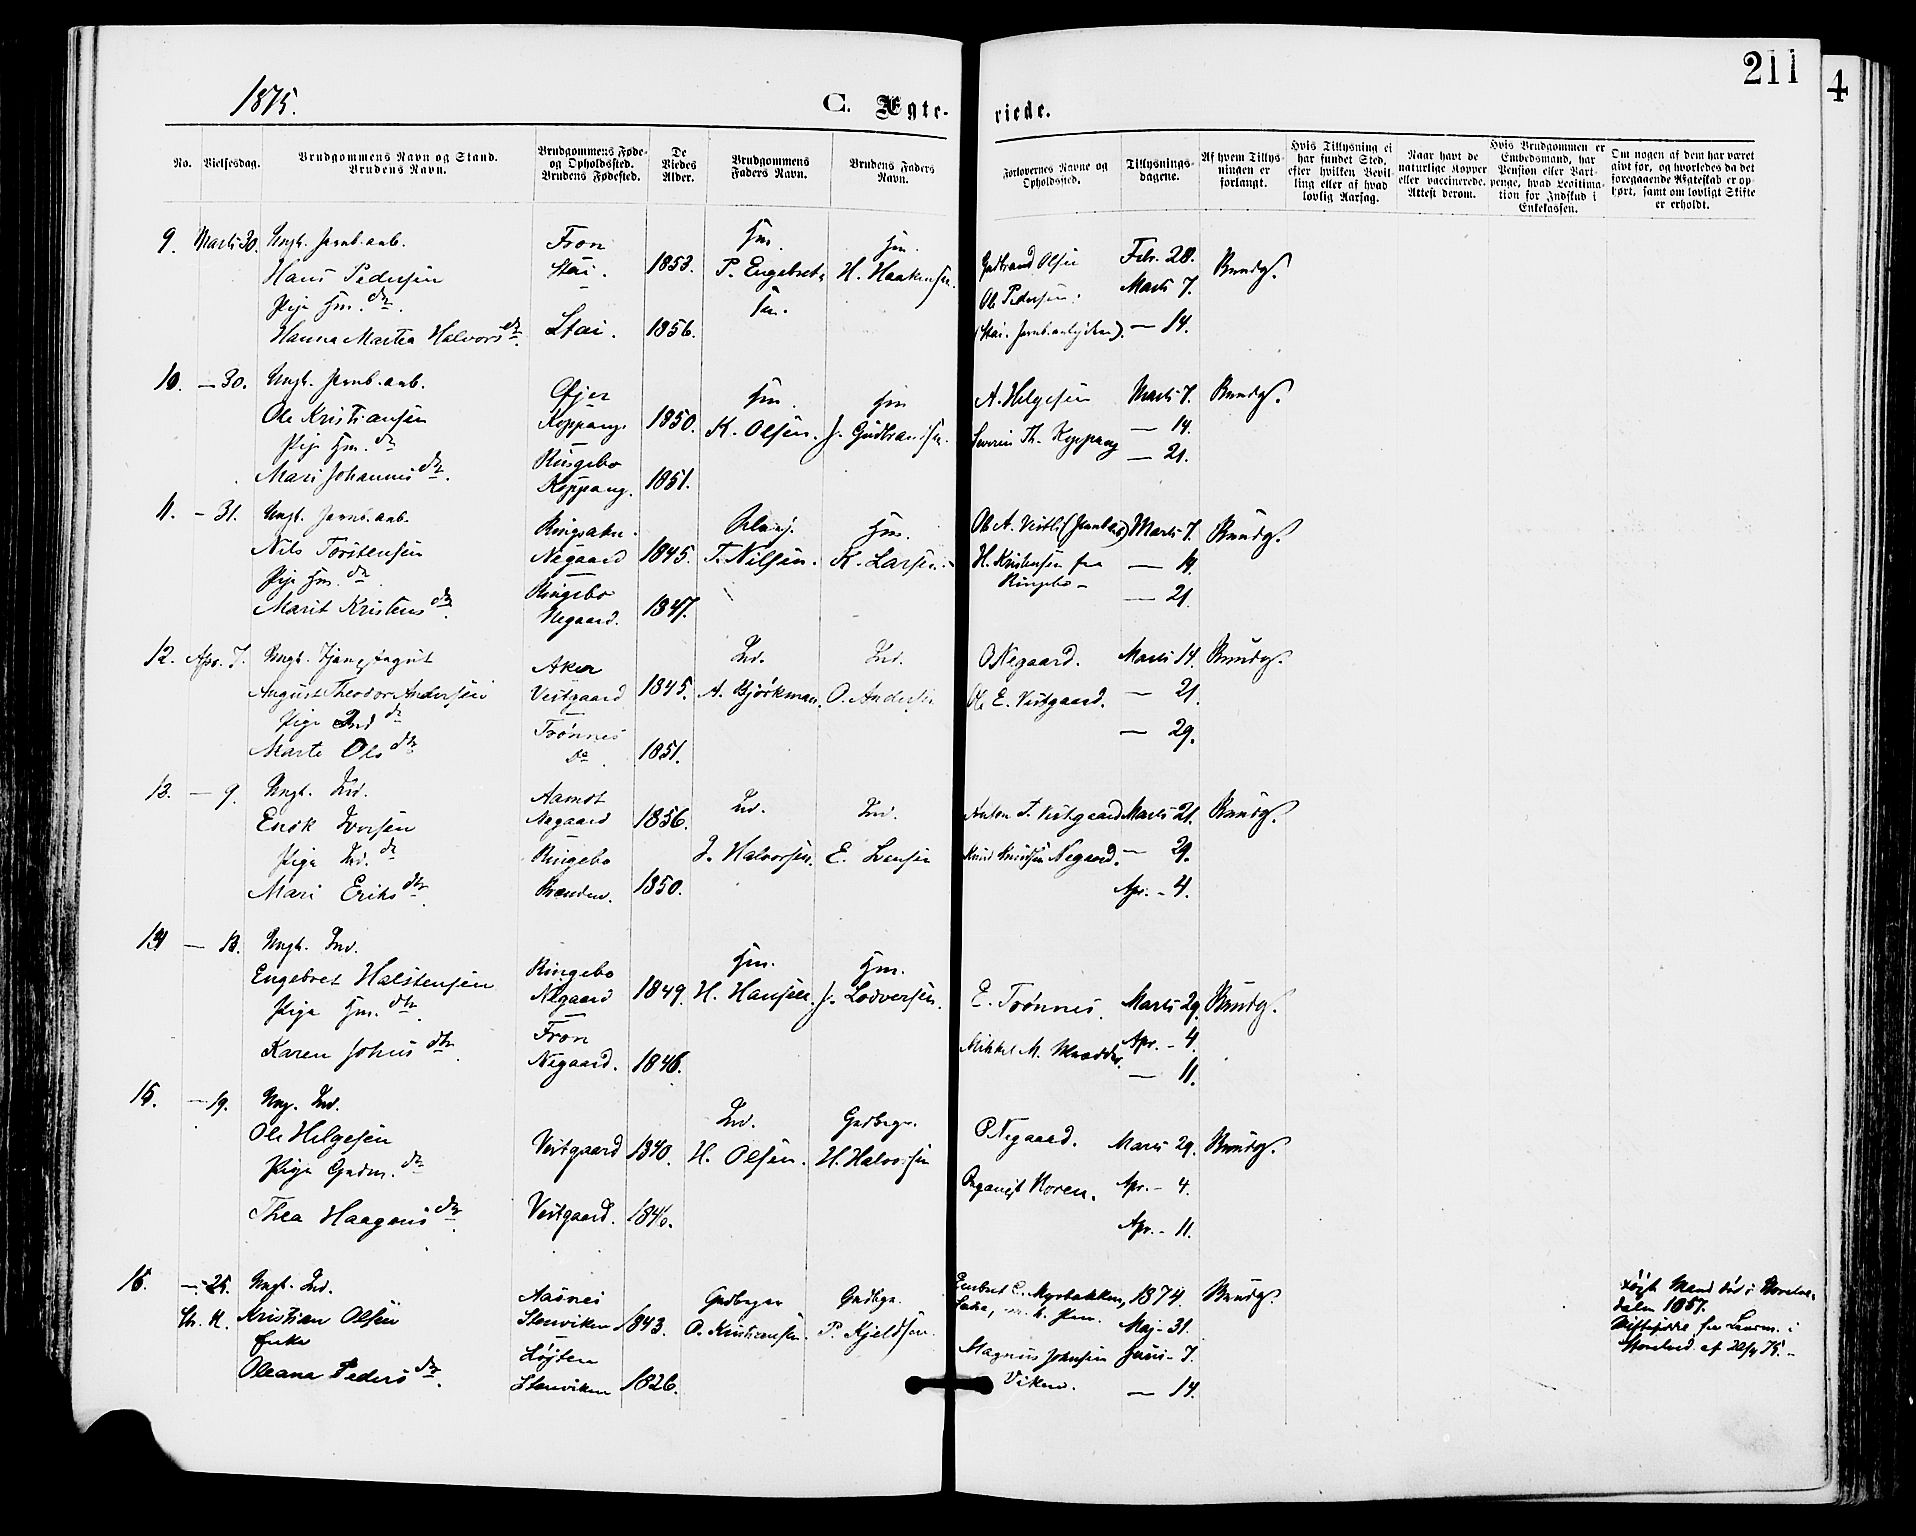 211
4
1875.
C. Ægte- viede.
No.
Vielsesdag.
Brudgommens Navn og Stand.
Brudens Navn.
Brudgommens Føde-
og Opholdssted.
Brudens Fødested.
De
Viedes
Alder.
Brudgommens
Faders Navn.
Brudens Faders
Navn.
Forlovernes Navne og
Opholdssted.
Tillysnings-
dagene.
Af hvem Tillys-
ningen er
forlangt.
Hvis Tillysning ei
har fundet Sted,
efter hvilken Bevil-
ling eller af hvad
lovlig Aarsag.
Naar havt de
naturlige Kopper
eller vaccinerede.
Attest derom.
Hvis Brudgommen er
Embedsmand, har
Pension eller Vart-
penge, hvad Legitima-
tion for Indskud i
Enkekassen.
Om nogen af dem har været
gift før, og hvorledes da det
foregaaende Ægteskab er op-
hørt, samt om lovligt Skifte
er erholdt.
9. Marts 30. Ungk. Jernb. arb.
Hans Pedersen
Pige Hm. dtr.
Hanna Martea Halvorsdtr.
Fron
Stai.
Stai.
1853.
1856.
Hm.
P. Engebret-
sen.
Hm.
H. Haakensen.
Gudbrand Olsen
Ole Pedersen.
(Stai. Jernb.arbeidere).
Febr. 28.
Marts 7.
— 14.
Brudg.
10. — 30. Ungk. Jernb. arb.
Ole Kristiansen
Pige Hm. dtr
Mari Johannesdtr.
Øjer
Koppang.
Ringebo
Koppang.
1850.
1851.
Hm.
K. Olsen.
Hm
J. Gudbrandsen.
A. Helgesen
Severin Th. Koppang
Marts 7.
— 14.
— 21.
Brudg.
11. — 31. Ungk. Jernb. arb.
Nils Torstensen
Pige Hm. dtr
Marit Kristensdtr.
Ringsaker.
Negaard
Ringebo
Negaard.
1845.
1847.
T. Nilsen.
Hm.
K. Larsen.
H. Kristensen fra
Ringebo
Marts 7.
— 14.
— 21.
Brudg.
12. Apr. 7. Ungk.
August Theodor Andersen
Pige Ind dtr
Marte Olsdtr
Aker
Vestgaard
Trønnes
do.
1845.
1851.
Ind.
A. Bjørkman.
Ind.
O. Andersen
O Negaard.
Ole E. Vestgaard.
Marts 14.
— 21.
— 29.
Brudg.
13. — 9. Ungk. Ind.
Enok Iversen
Pige Ind. dtr
Mari Eriksdtr.
Aamot
Negaard
Ringebo
Brenden.
1856.
1850.
Ind.
I. Halvorsen.
Ind.
E. Ivensen
Anton T. Vestgaard
Knud Knudsen Negaard.
Marts 21.
— 29.
Apr. - 4.
Brudg.
14 — 13. Ungk. Ind.
Engebret Halstensen
Pige Hm. dtr.
Karen Johnsdtr.
Ringebo
Negaard
Fron
Negaard.
1849.
1848.
Hm.
H. Hansen.
Hm.
J. Lodversen.
E. Trønnes.
Mikkel M. Mødder.
Marts 29.
Apr. - 4.
— 11.
Brudg.
15. — 19. Ung. Ind.
Ole Helgesen
Pige Gudm. dtr
Thea Haagensdtr.
Vestgaard
Vestgaard.
1840.
1846.
Ind.
H. Olsen.
Gudbrgr.
H. Halvorsen
P Negaard.
Organist Koren.
Marts 29.
Apr. - 4.
Apr. - 11.
Brudg.
16. — 25. Ungk. Ind.
St. K. Kristian Olsen
Enke
Oleana Pedersdtr.
Aasnes
Stenviken
Løjten
Stenviken
1843.
1826.
Gudbrgr
O. Kristiansen.
Gudbgr.
P. Kjeldsen.
Embret C. Myrbakken,
Magnus Johnsen
Viken.
1874.
Maj - 31.
Juni - 7.
— 14.
Brudg.
Mand død i Storelve-
dalen 1857.
Skifteseddel fra Lensm. i
Storelved. af